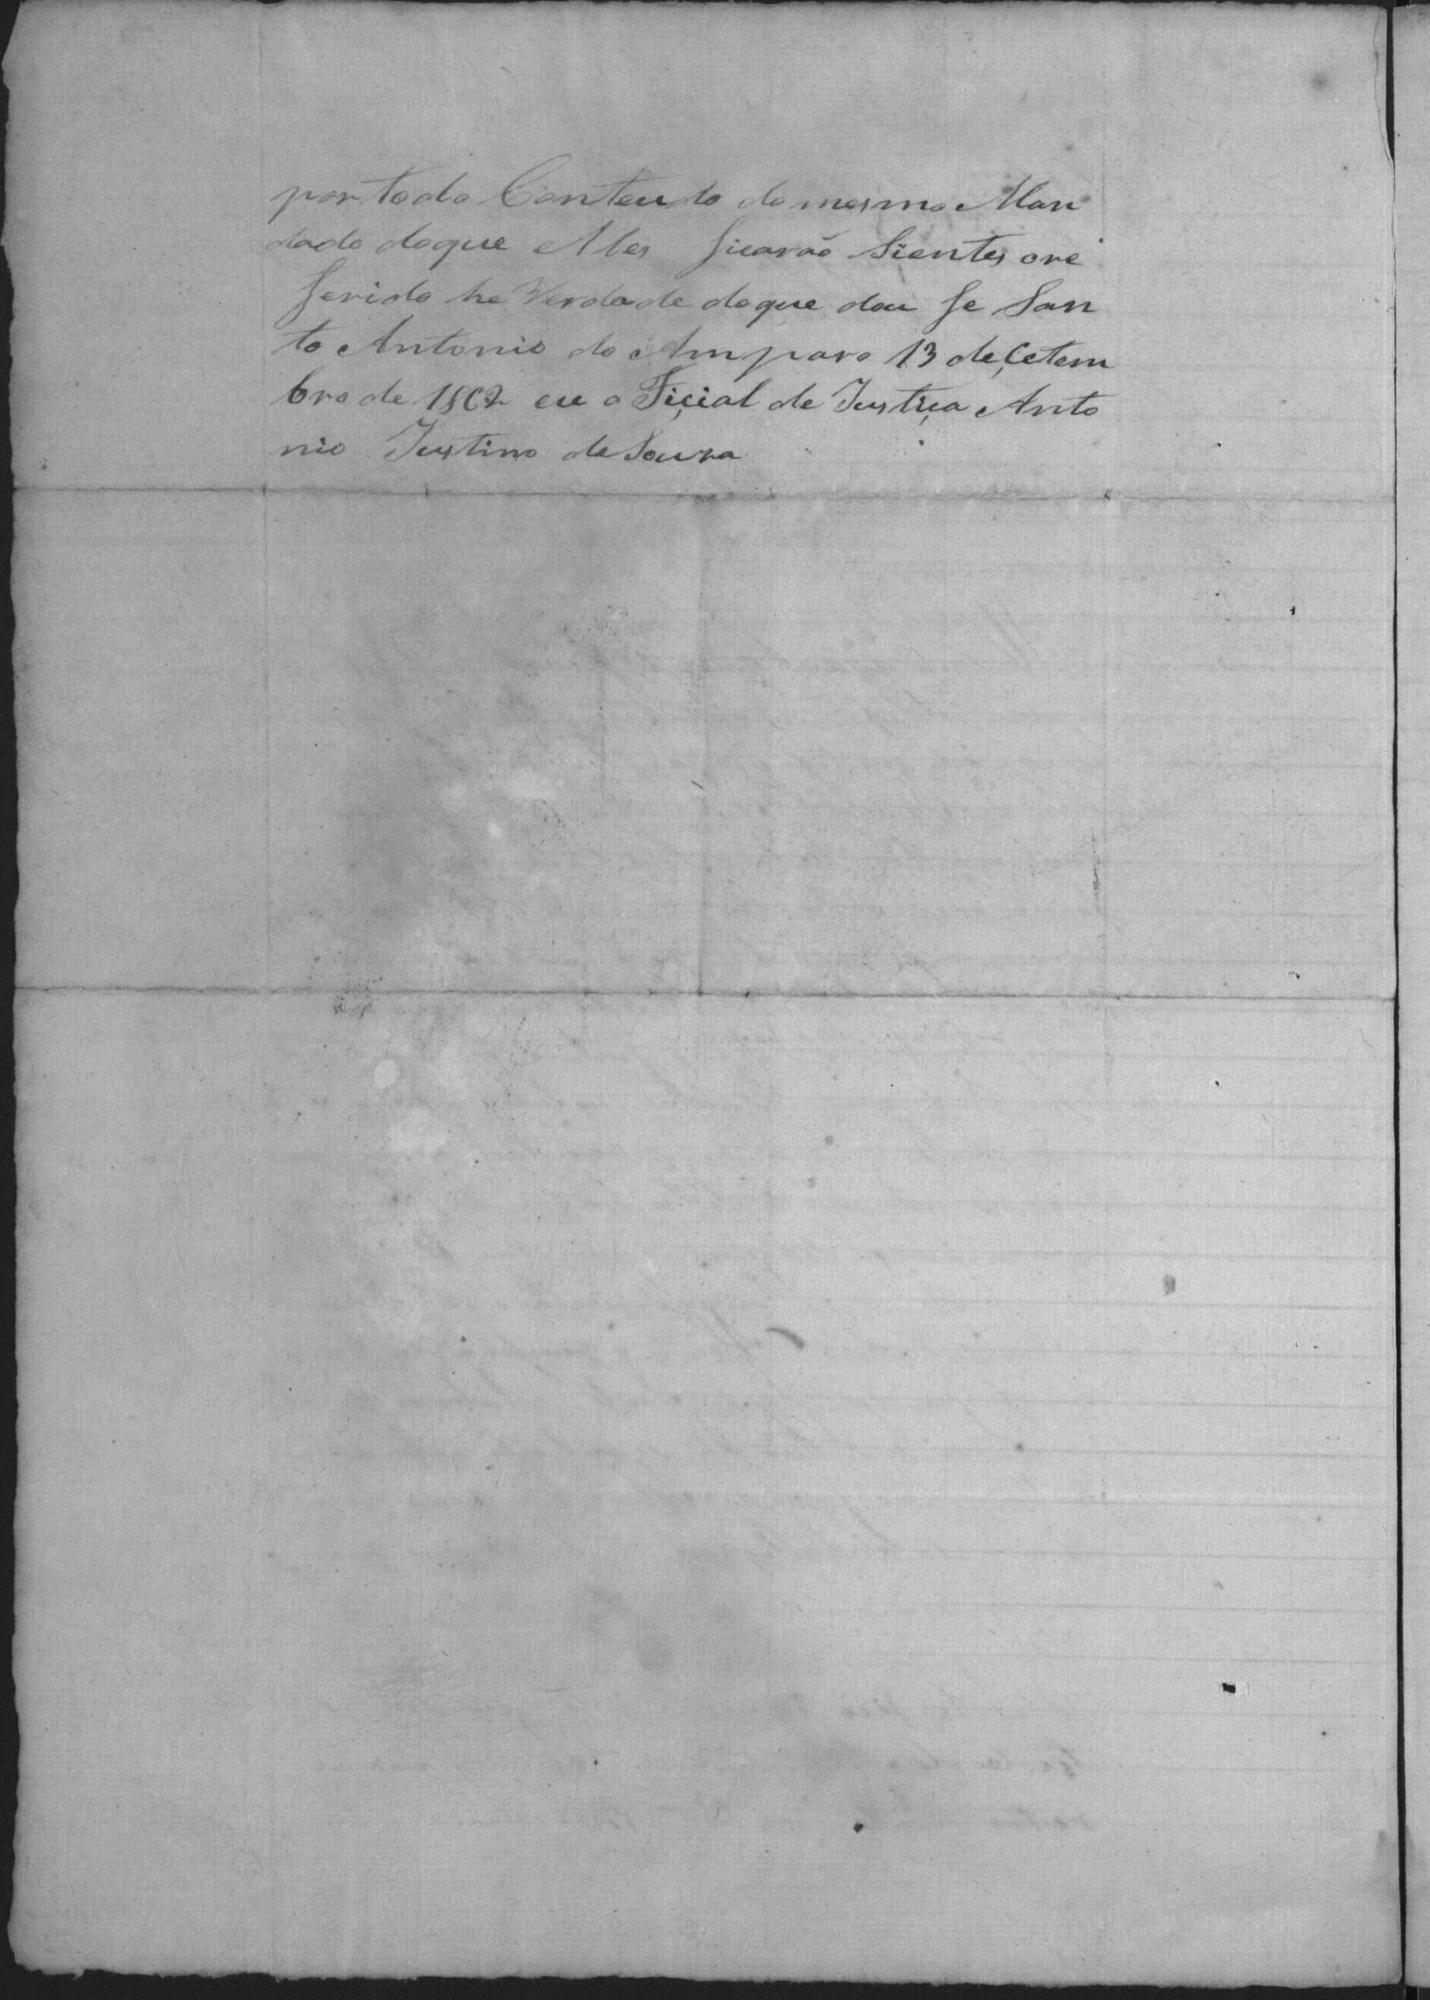 por todo Conteudo do mesmo Man
dado do que elles ficarão Sientes o re
ferido he Verdade do que dou fe San
to Antonio do Amparo 13 de Çetem
bro de 1862 eu o Fiçial de Justiça Anto
nio Justino de Souza